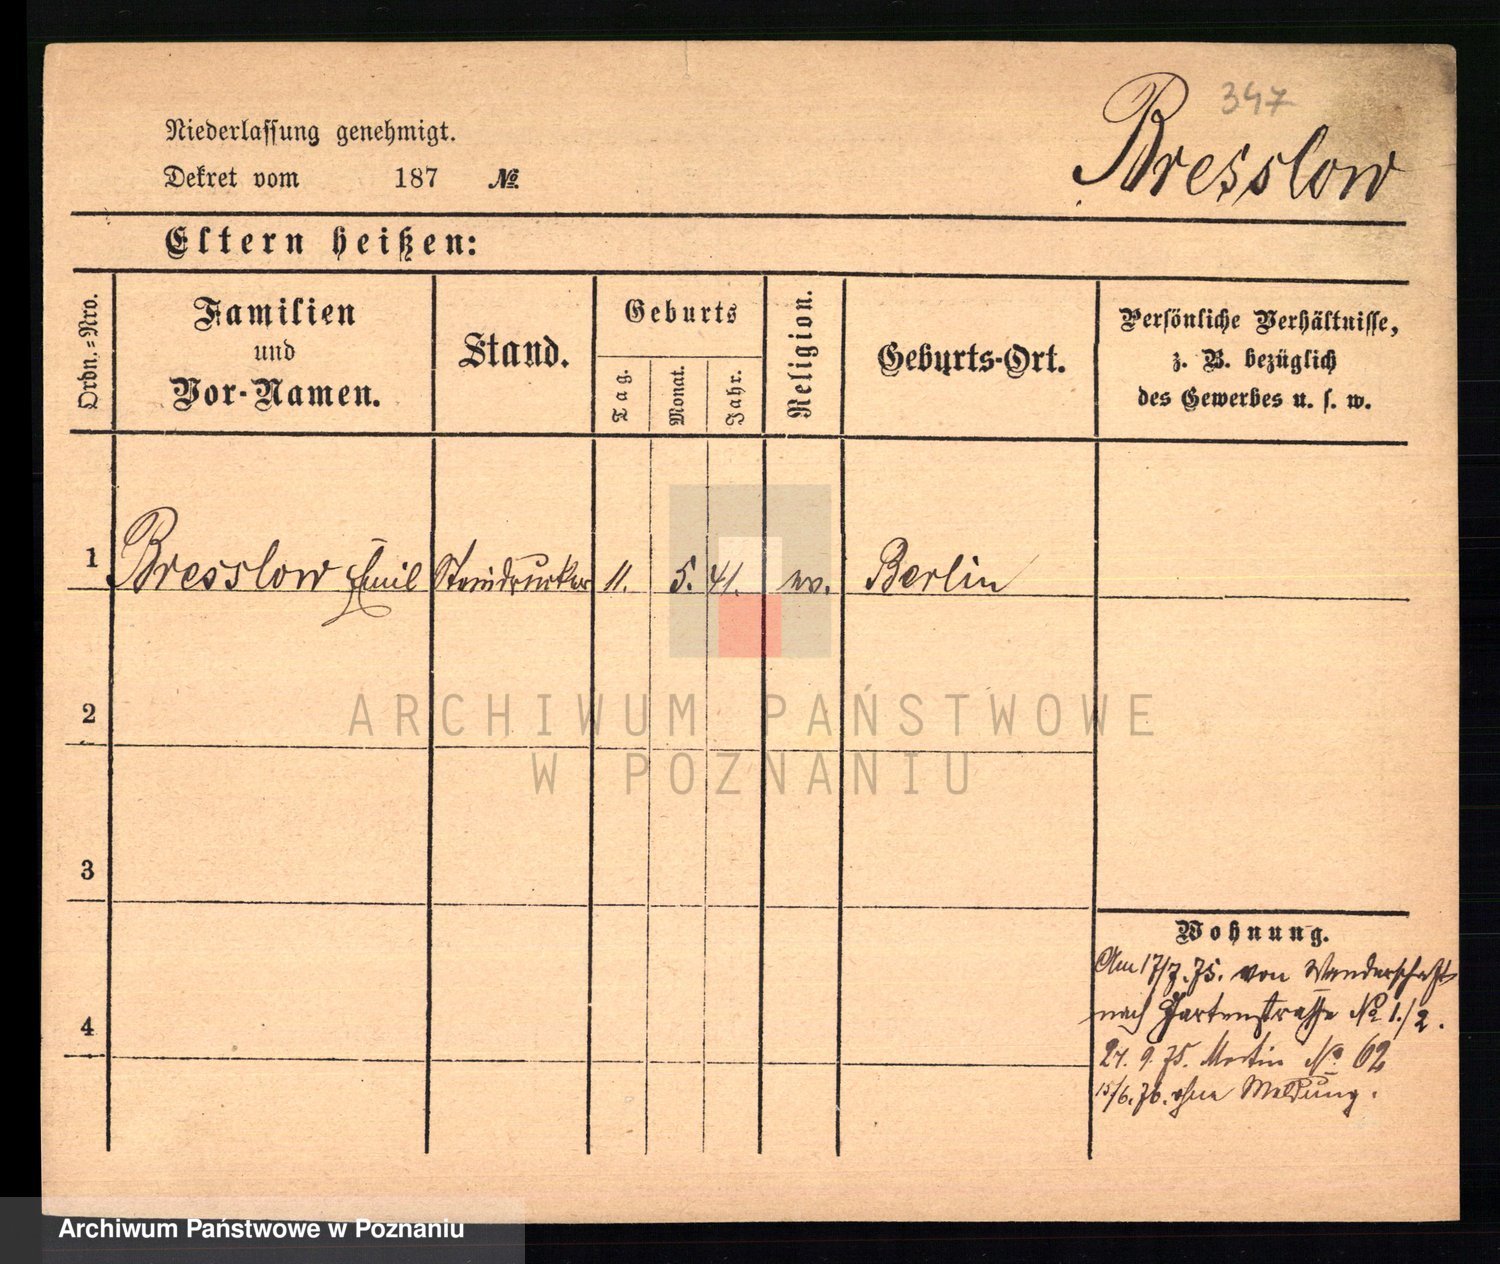 347
Bresslow
Niederlassung genehmigt.
Dekret vom 187 №
Eltern heißen:
Ordn.-Nro.
Familien
und
Vor-Namen.
Stand.
Geburts
Tag.
Monat.
Jahr.
Religion.
Geburts-Ort.
Persönliche Verhältnisse,
z. B. bezüglich
des Gewerbes u. s. w.
1 Bresslow Emil Steindrucker 11. 5. 41. ev. Berlin
2
3
4
Wohnung.
Am 17/7. 75. von Wanderschaft
nach Gartenstraße № 1./2.
27. 9. 75. Martin № 62
15/6. 76. ohne Meldung.
ARCHIWUM PAŃSTWOWE
W POZNANIU
Archiwum Państwowe w Poznaniu